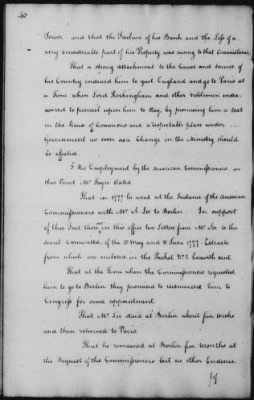 40
Tower and that the Failure of his Bank and the Loss of a
very considerable part of his Property was owing to that Circumstance
That a strong attachment to the Cause and Success of
his Country induced him to quit England and go to Paris at
a Time when Lord Rockingham and other Noblemen endea-
voured to prevail upon him to stay, by promising him a Seat
in the House of Commons and a respectable place under
Government as soon as a Change in the Ministry should
be effected.
To the Employment by the American Commissioners on
this Point Mr Sayre stated
That in 1777 he went at the Instance of the American
Commissioners with Mr A. Lee to Berlin. In support
of this Fact there are in this office two Letters from Mr Lee to the
Secret Committee, of 2d May and 11 June 1777. Extracts
from which are enclosed in the Packet No 2 herewith sent.
That at the Time when the Commissioners requested
him to go to Berlin they promised to recommend him to
Congress for some appointment.
That Mr Lee staid at Berlin about five weeks
and then returned to Paris.
That he remained at Berlin five Months at
the Request of the Commissioners but no other Evidence